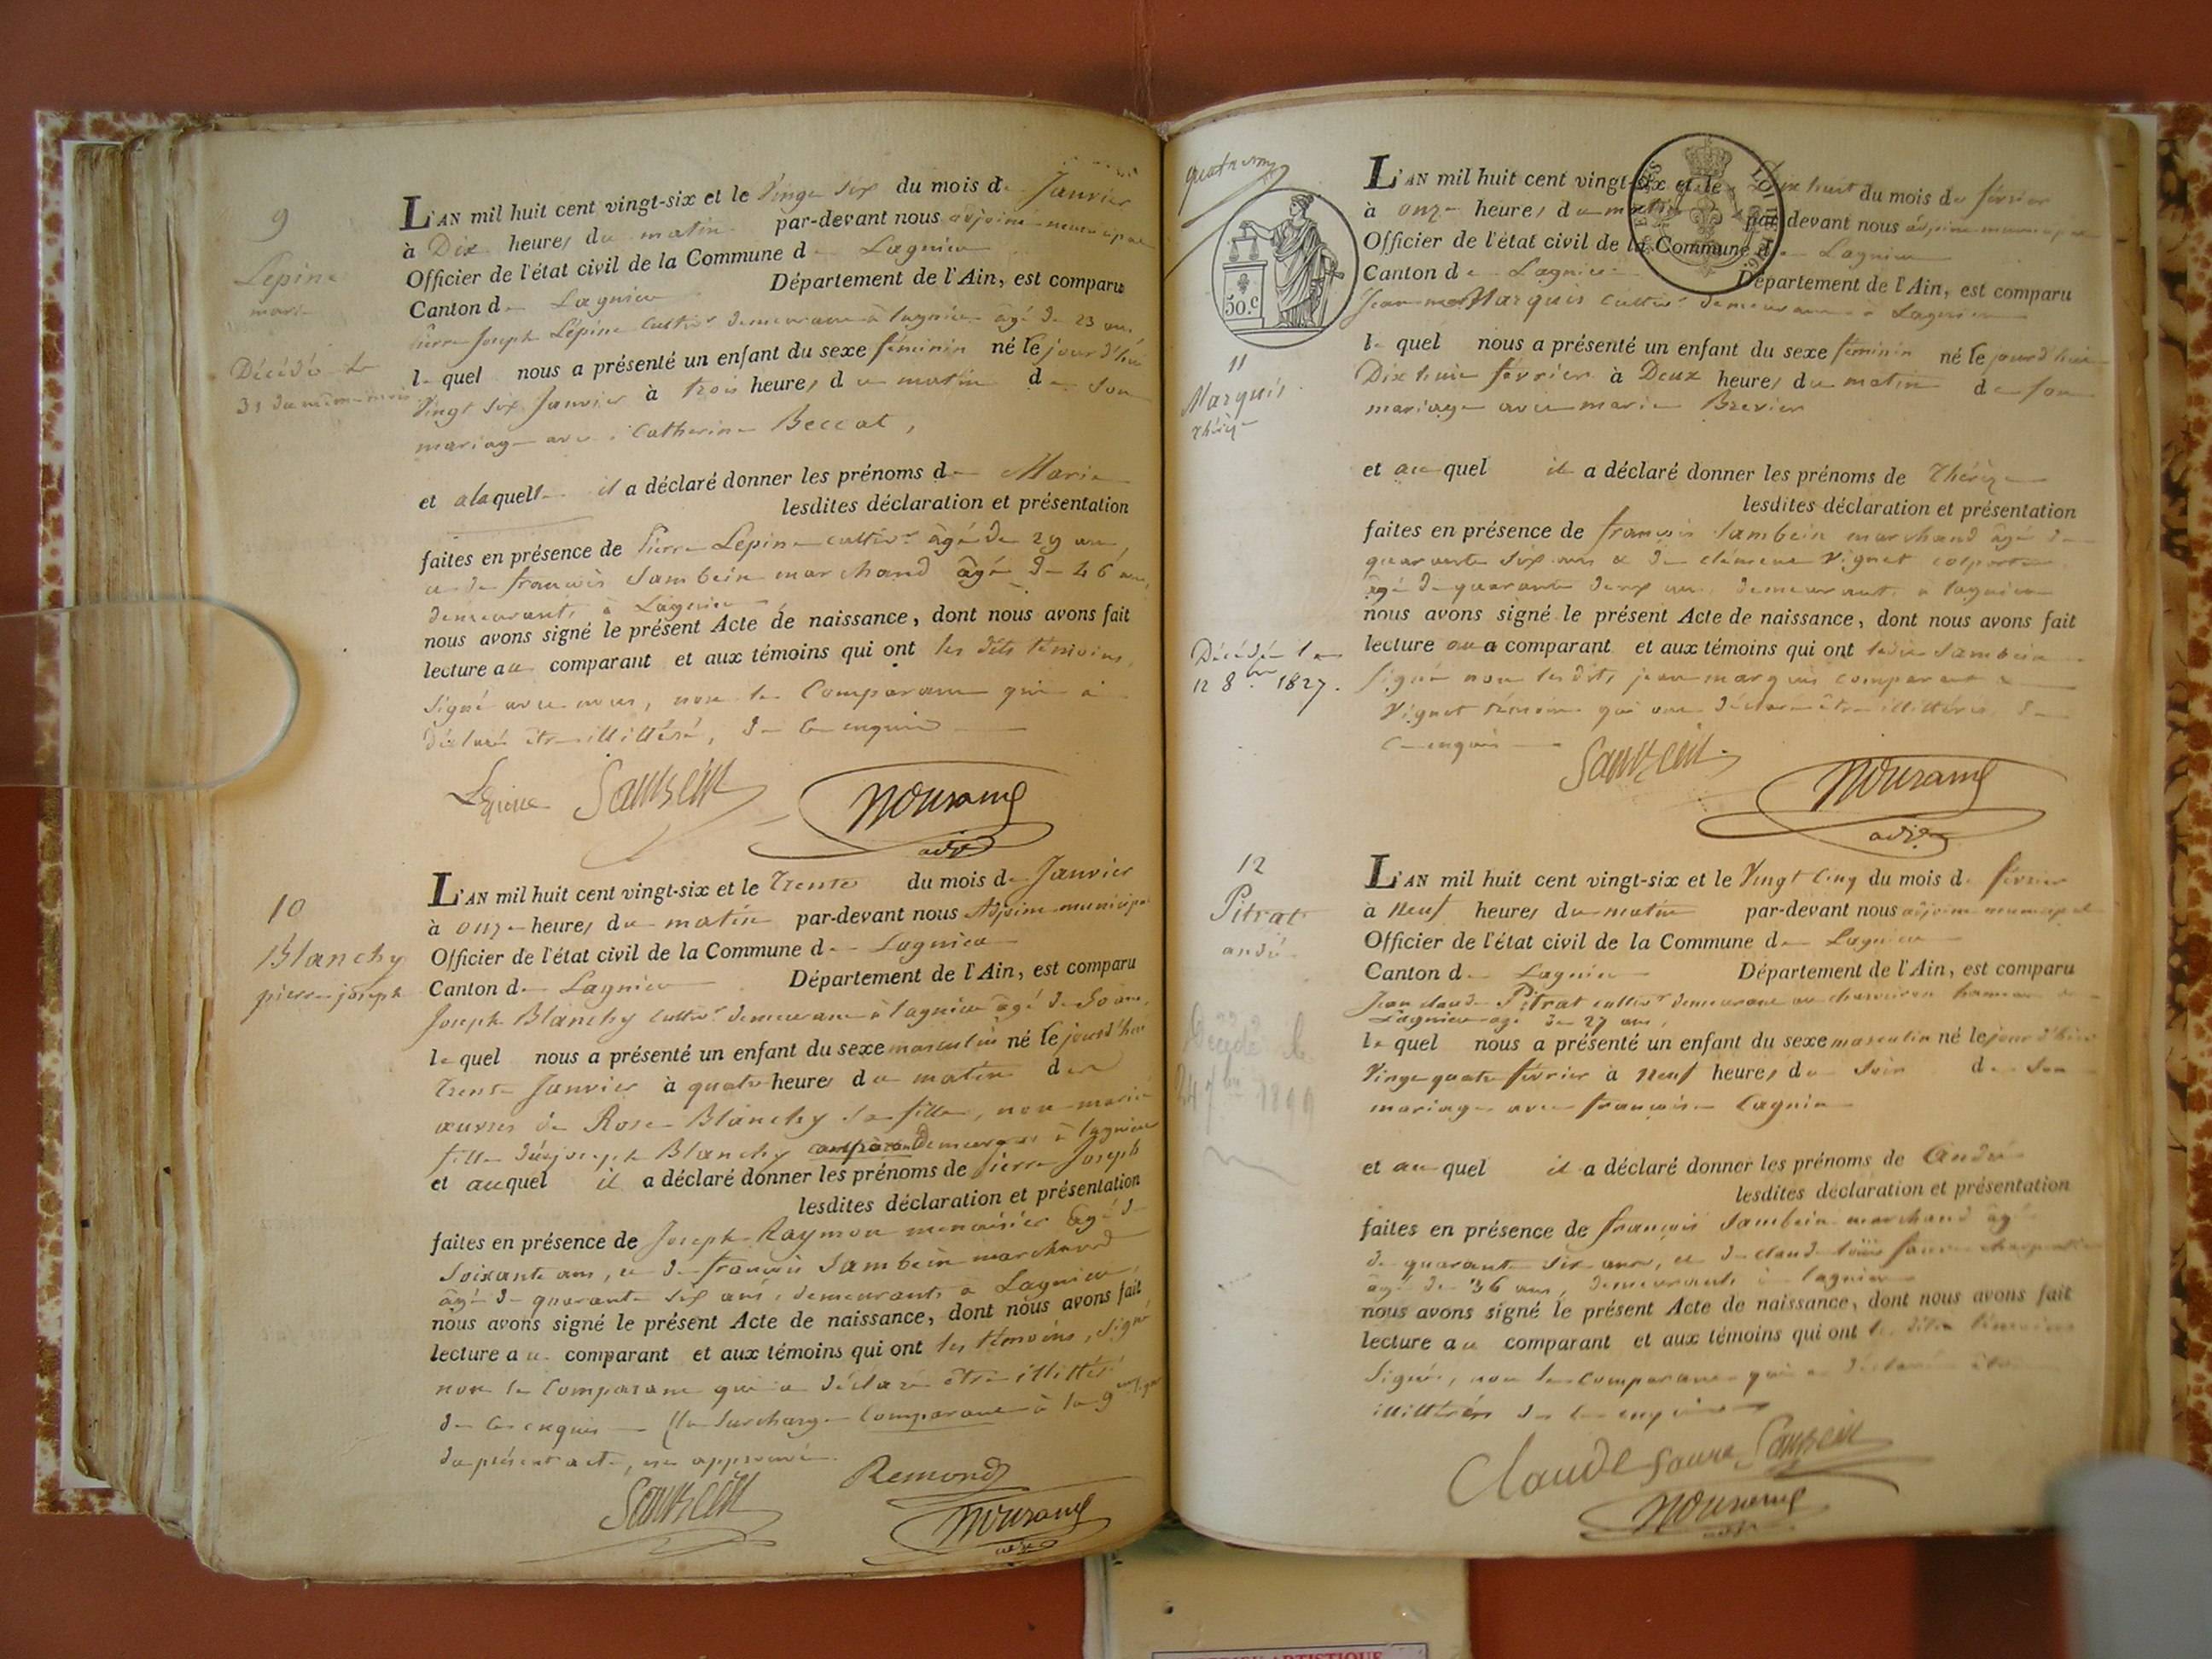 9
Lepine
marie
Décédée le
31 du même mois
L'AN mil huit cent vingt-six et le Vingt six du mois de Janvier
à Dix heures du matin par-devant nous adjoint municipal
Officier de l'état civil de la Commune de Lagnieu
Canton de Lagnieu Département de l'Ain, est comparu
pierre Joseph Lépine cultivr demeurant à lagnieu âgé de 23 ans
lequel nous a présenté un enfant du sexe féminin né le jourd'hui
Vingt six Janvier à trois heures du matin de son
mariage avec Catherine Beccat,
et alaquelle il a déclaré donner les prénoms de Marie
lesdites déclaration et présentation
faites en présence de Pierre Lepine cultivr âgé de 29 ans
et de françois Sambein marchand âgé de 46 ans,
demeurants à Lagnieu
nous avons signé le présent Acte de naissance, dont nous avons fait
lecture au comparant et aux témoins qui ont les dits témoins,
signé avec nous, non le Comparant qui a
déclaré être illitéré, de ce enquis
Lepine Sambein
adjt
10
Blanchy
pierre joseph
L'AN mil huit cent vingt-six et le Trente du mois de Janvier
à onze heures du matin par-devant nous Adjoint municipal
Officier de l'état civil de la Commune de Lagnieu
Canton de Lagnieu Département de l'Ain, est comparu
Joseph Blanchy cultivr demeurant à lagnieu âgé de 50 ans,
lequel nous a présenté un enfant du sexe masculin né le jourd'hui
trente Janvier à quatre heures du matin des
œuvres de Rose Blanchy sa fille, non mariée
fille de joseph Blanchy comparant demeurant à lagnieu
et auquel il a déclaré donner les prénoms de pierre Joseph
lesdites déclaration et présentation
faites en présence de Joseph Raymon menuisier âgé de
soixante ans, et de françois Sambein marchand
âgé de quarante six ans, demeurants à Lagnieu,
nous avons signé le présent Acte de naissance, dont nous avons fait
lecture au comparant et aux témoins qui ont les témoins, signé
non le Comparant qui a déclaré être illitéré
de ce enquis (la surcharge Comparant à la 9
du présent acte, est approuvée.
Sambein Remond
quatre
50.c
11
Marquis
thérèze
Décédée le
12 8bre 1827.
L'AN mil huit cent vingt-six et le Dix huit du mois de février
à onze heures du matin par-devant nous adjoint municipal
Officier de l'état civil de la Commune de Lagnieu
Canton de Lagnieu Département de l'Ain, est comparu
Jean Marquis cultivr demeurant à Lagnieu
lequel nous a présenté un enfant du sexe féminin né le jourd'hui
Dix huit février à Deux heures du matin de son
mariage avec marie Brevier
et au quel il a déclaré donner les prénoms de Thérèze
lesdites déclaration et présentation
faites en présence de françois Sambein marchand âgé de
quarante six ans & de clément Vignet colporteur
âgé de quarante deux ans, demeurants à lagnieu
nous avons signé le présent Acte de naissance, dont nous avons fait
lecture au comparant et aux témoins qui ont ledit Sambein
signé non lesdits jean marquis comparant &
Vignet témoin qui ont déclaré être illitérés, de
ce enquis
Sambein
adjt
12
Pitrat
andré
Décédé le
1899
L'AN mil huit cent vingt-six et le Vingt Cinq du mois de février
à Neuf heures du matin par-devant nous adjoint municipal
Officier de l'état civil de la Commune de Lagnieu
Canton de Lagnieu Département de l'Ain, est comparu
Jean claude Pitrat cultivr demeurant au hameau de
Lagnieu âgé de 27 ans,
lequel nous a présenté un enfant du sexe masculin né le jour d'hier
Vingt quatre février à Neuf heures du Soir de Son
mariage avec françoise Cagnin
et au quel il a déclaré donner les prénoms de André
lesdites déclaration et présentation
faites en présence de françois Sambein marchand âgé
de quarante six ans, et de claude louis charpentier
âgé de 36 ans, demeurants à lagnieu
nous avons signé le présent Acte de naissance, dont nous avons fait
lecture au comparant et aux témoins qui ont les dits témoins
Signé, non le comparant qui a déclaré être
illitéré de ce enquis
Claude Sambein